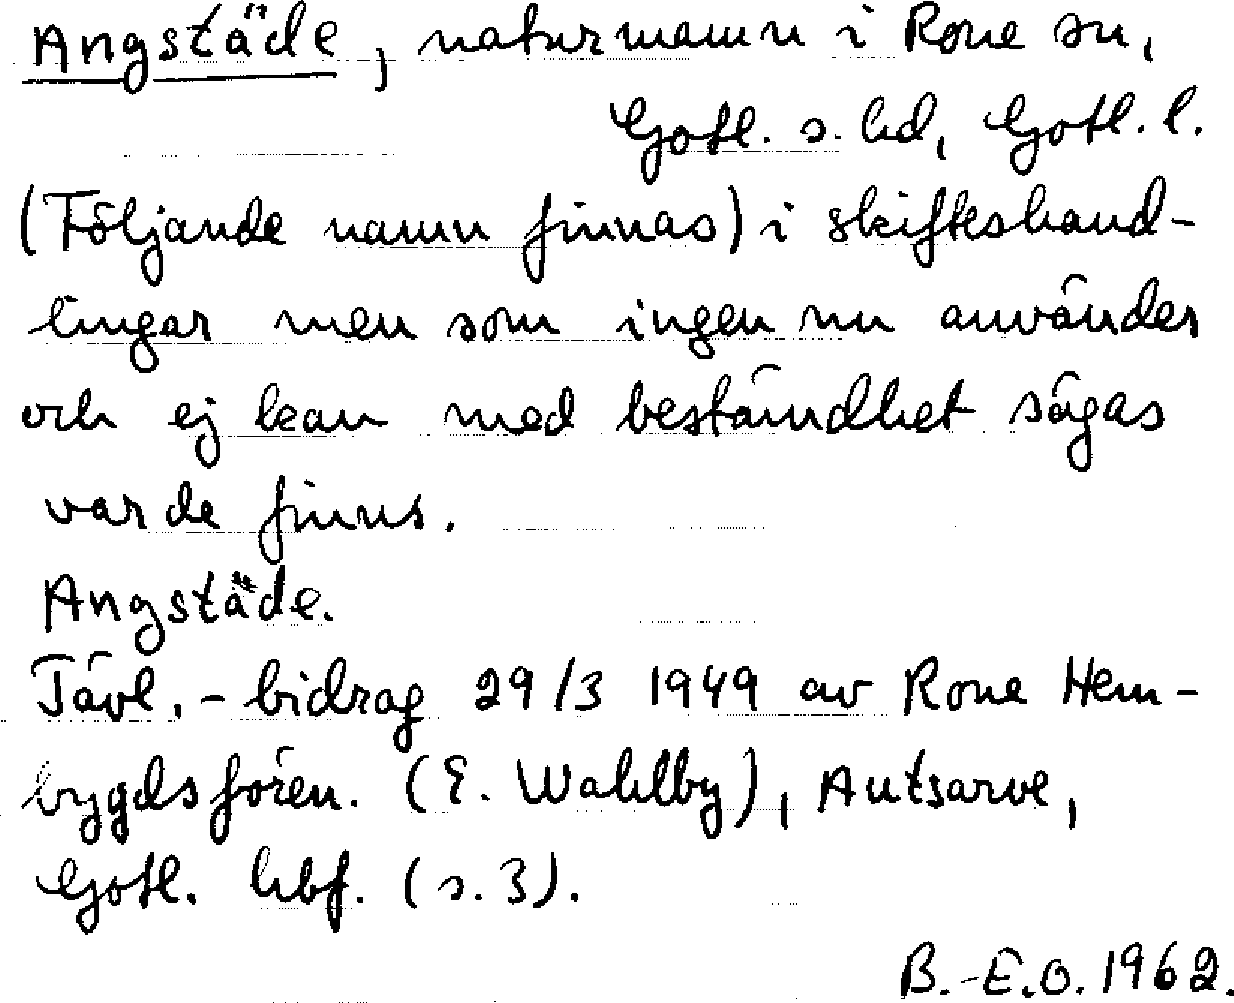 Angstäde, naturnamn i Rone sn,
Gotl. s. hd, Gotl. l.
(Följande namn finnas) i skifteshand-
lingar men som ingen nu använder
och ej kan med beständhet sägas
var de finns.
Angstäde.
Tävl.-bidrag 29/3 1949 av Rone Hem-
bygdsfören. (E. Wahlby), Autsarve,
Gotl. hbf. (s. 3).
B.-E.O. 1962.